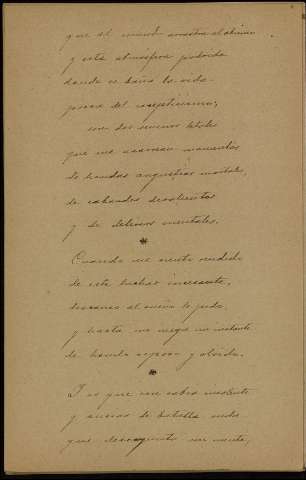 que el mundo arrastra al abismo
y esta atmósfera podrida
donde se baña la vida
poseca del escepticismo;
son dos sueños letales
que me acarrean momentos
de hondas angustias mortales,
de cobardes desalientos
y de delirios mentales.
*
Cuando me siento rendido
de este luchar incesante,
descanso al sueño le pido,
y hasta me niega un instante
de honda reposo y olvido.
*
Y es que mi cabeza
y ansias de batalla ruda
que mi mente,